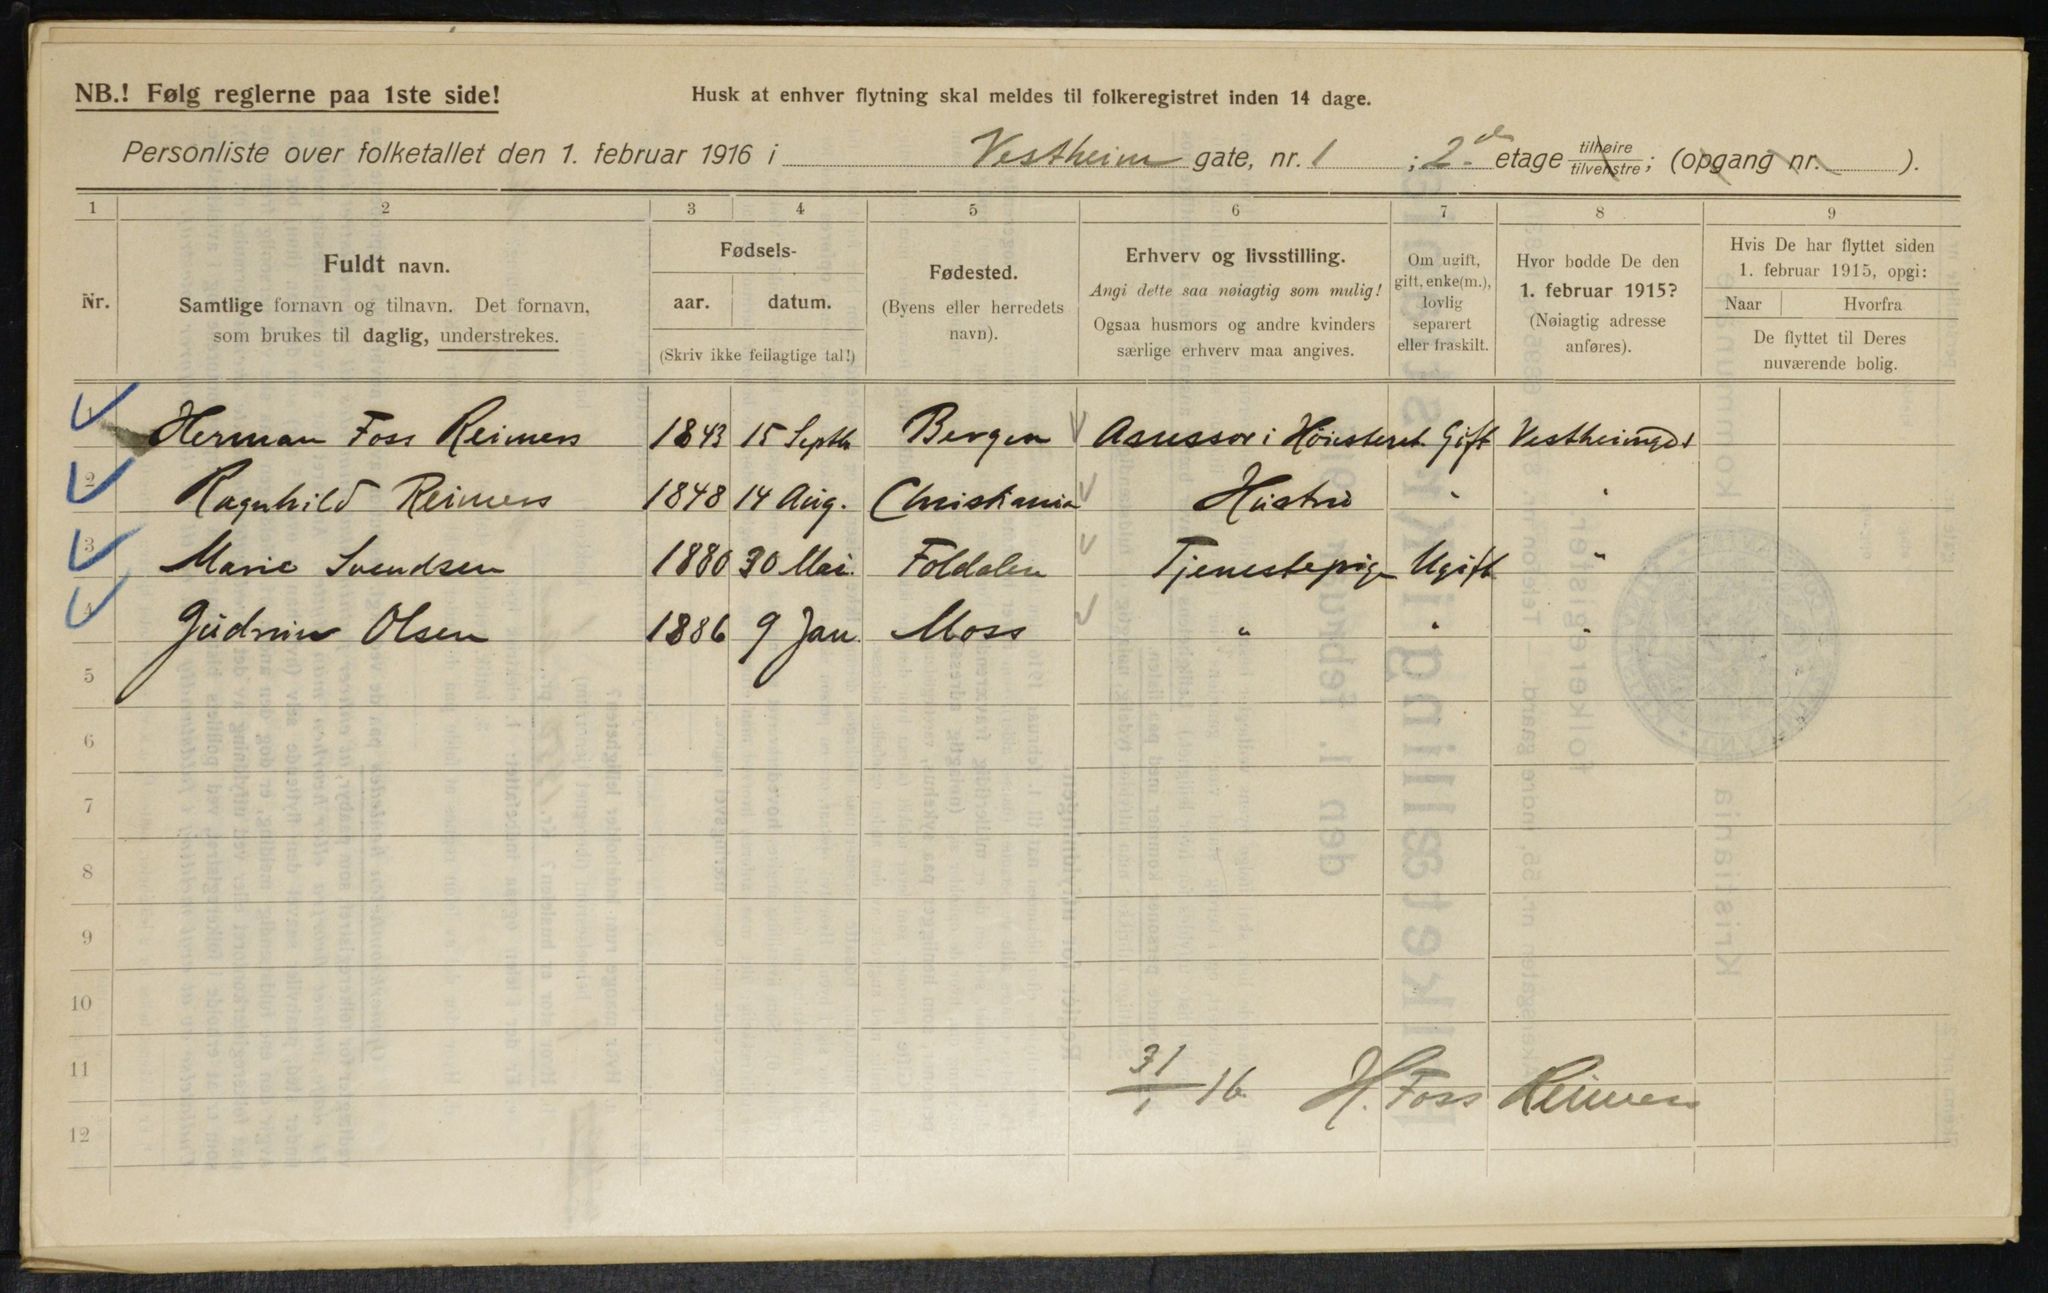 NB.! Følg reglerne paa 1ste side!
Husk at enhver flytning skal meldes til folkeregistret inden 14 dage.
Personliste over folketallet den 1. februar 1916 i Vestheim gate, nr. 1 ; 2.de etage tilhøire tilvenstre; (opgang nr. ).
1 2 3 4 5 6 7 8 9
Nr.
Fuldt navn.
Samtlige fornavn og tilnavn. Det fornavn,
som brukes til daglig, understrekes.
Fødsels-
aar. datum.
(Skriv ikke feilagtige tal!)
Fødested.
(Byens eller herredets
navn).
Erhverv og livsstilling.
Angi dette saa nøiagtig som mulig!
Ogsaa husmors og andre kvinders
særlige erhverv maa angives.
Om ugift,
gift, enke(m.),
lovlig
separert
eller fraskilt.
Hvor bodde De den
1. februar 1915?
(Nøiagtig adresse
anføres).
Hvis De har flyttet siden
1. februar 1915, opgi:
Naar Hvorfra
De flyttet til Deres
nuværende bolig.
1 Herman Foss Reimers 1843 15 Septb Bergen Assessor i Høiesteret Gift Vestheimgt 1
2 Ragnhild Reimers 1848 14 Aug. Christiania Hustru " "
3 Marie Svendsen 1880 30 Mai Foldalen Tjenestepige Ugift "
4 Gudrun Olsen 1886 9 Jan. Moss " " "
5
6
7
8
9
10
11
12
31/1 16 H. Foss Reimers